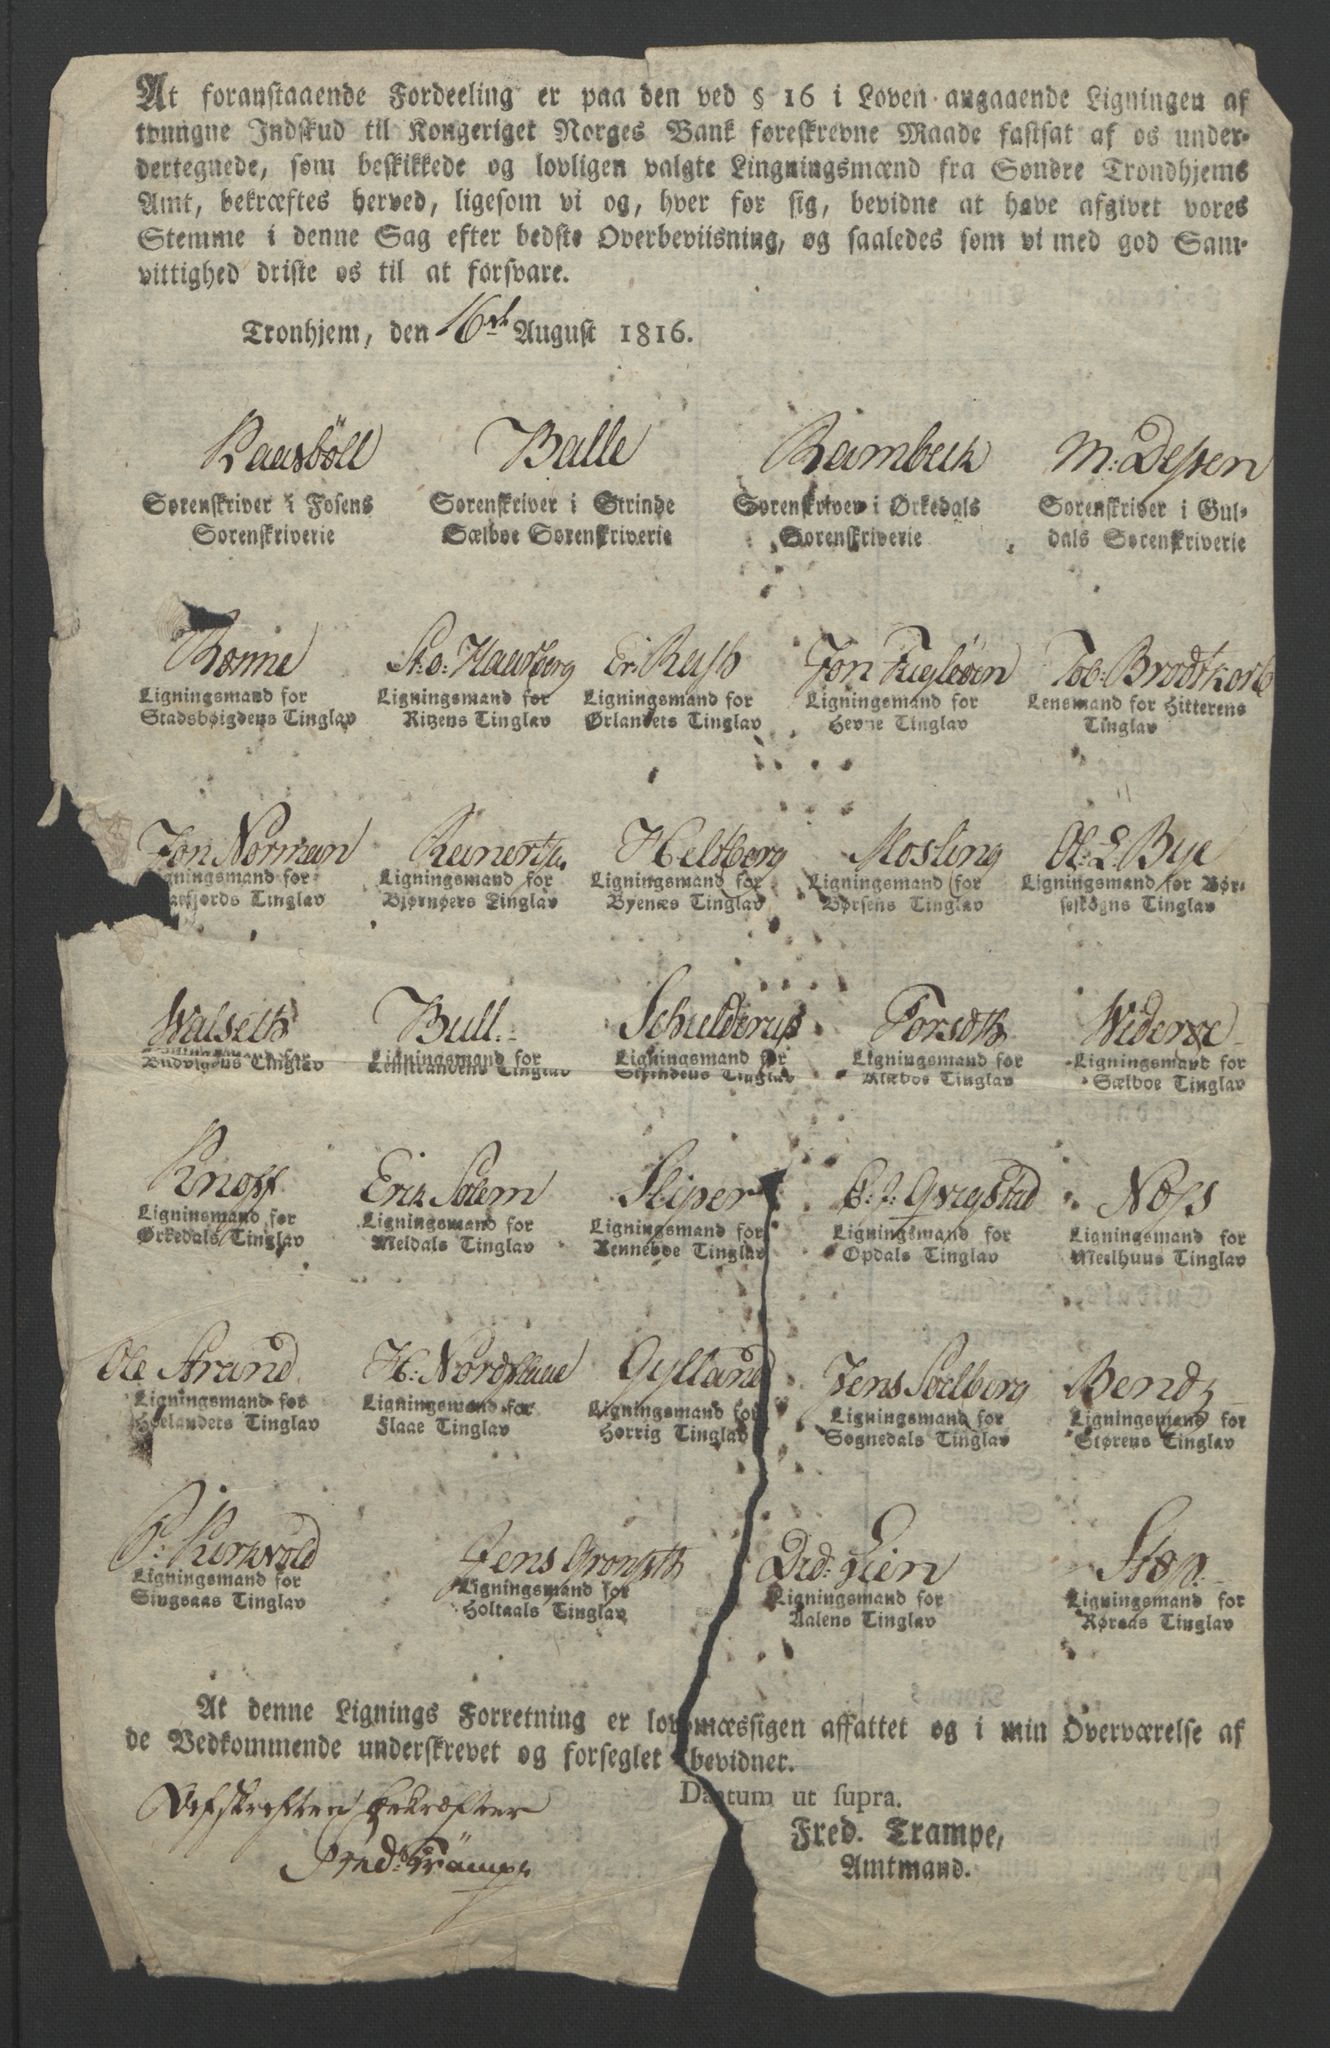 At foranstaaende Fordeeling er paa den ved § 16 i Loven angaaende Ligningen af
tvungne Indskud til Kongeriget Norges Bank foreskrevne Maade fastsat af os under-
dertegnede, som beskikkede og lovligen valgte Lingningsmænd fra Søndre Trondhjems
Amt, bekræftes herved, ligesom vi og, hver for sig, bevidne at have afgivet vores
Stemme i denne Sag efter bedste Overbeviisning, og saaledes som vi med god Sam-
vittighed driste os til at forsvare.
Tronhjem, den 16de August 1816.
Kaasböll Balle Rambech M: Dessen
Sorenskriver i Fosens Sorenskriver i Strinde Sorenskriver i Ørkedals Sorenskriver i Gul-
Sorenskriverie Sælboe Sorenskriverie Sorenskriverie dals Sorenskriverie
Rønne St: O: Haarberg Er: Russ Jon Fugleöen Tob: Brodtkorb
Ligningsmand for Ligningsmand for Ligningsmand for Ligningsmand for Lensmand for Hitterens
Stadsbøigdens Tinglav Ritzens Tinglav Ørlandets Tinglav Hevne Tinglav Tinglav
Jon Norman Reinertsen Heltberg Mosling Ol: L: Bye
Ligningsmand for Ligningsmand for Ligningsmand for Ligningsmand for Ligningsmand for Bør-
fjords Tinglav Bjørnøers Tinglav Byenæs Tinglav Børsens Tinglav seskogns Tinglav
Walseth Bull. Schulderup Forsæth Widerøe
Ligningsmand for Ligningsmand for Ligningsmand for Ligningsmand for Ligningsmand for
Budvigens Tinglav Lenstrandens Tinglav Strindens Tinglav Klæboe Tinglav Sælboe Tinglav
Knoff Erik Solem Sliper Gregstad Næss
Ligninsmand for Ligningsmand for Ligningsmand for Ligningsmand for Ligningsmand for
Ørkedals Tinglav Meldals Tinglav Renneboe Tinglav Opdals Tinglav Meelhuus Tinglav
Ole Strand H: Nordflaae Gylland Jens Soelberg Bendz
Ligningsmand for Ligningsmand for Ligningsmand for Ligningsmand for Ligningsmand for
Hoelandets Tinglav Flaae Tinglav Horrig Tinglav Sognedals Tinglav Størens Tinglav
P: Kirkvold Jens Grønseth Did: Lien Støp.
Ligningsmand for Ligningsmand for Ligningsmand for Ligningsmand for
Singsaas Tinglav Holtaals Tinglav Aalens Tinglav Røraas Tinglav
At denne Lignings Forretning er lovmæssigen affattet og i min Overværelse af
de Vedkommende underskrevet og forseglet bevidner.
Datum ut supra.
Afskreften bekræfter
Fred. Trampe,
Fred: Trampe
Amtmand.